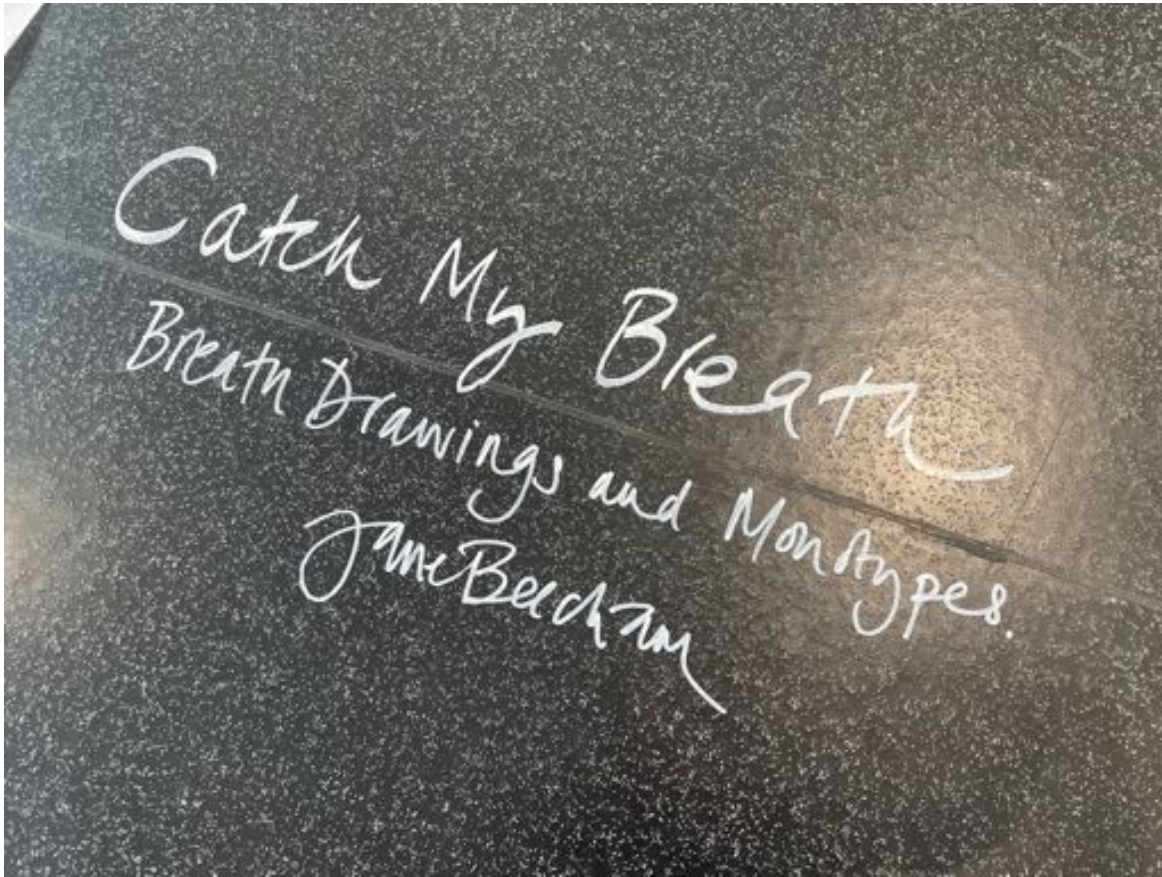 Catch My Breath
Breath Drawings and Monotypes.
Jane Beecham